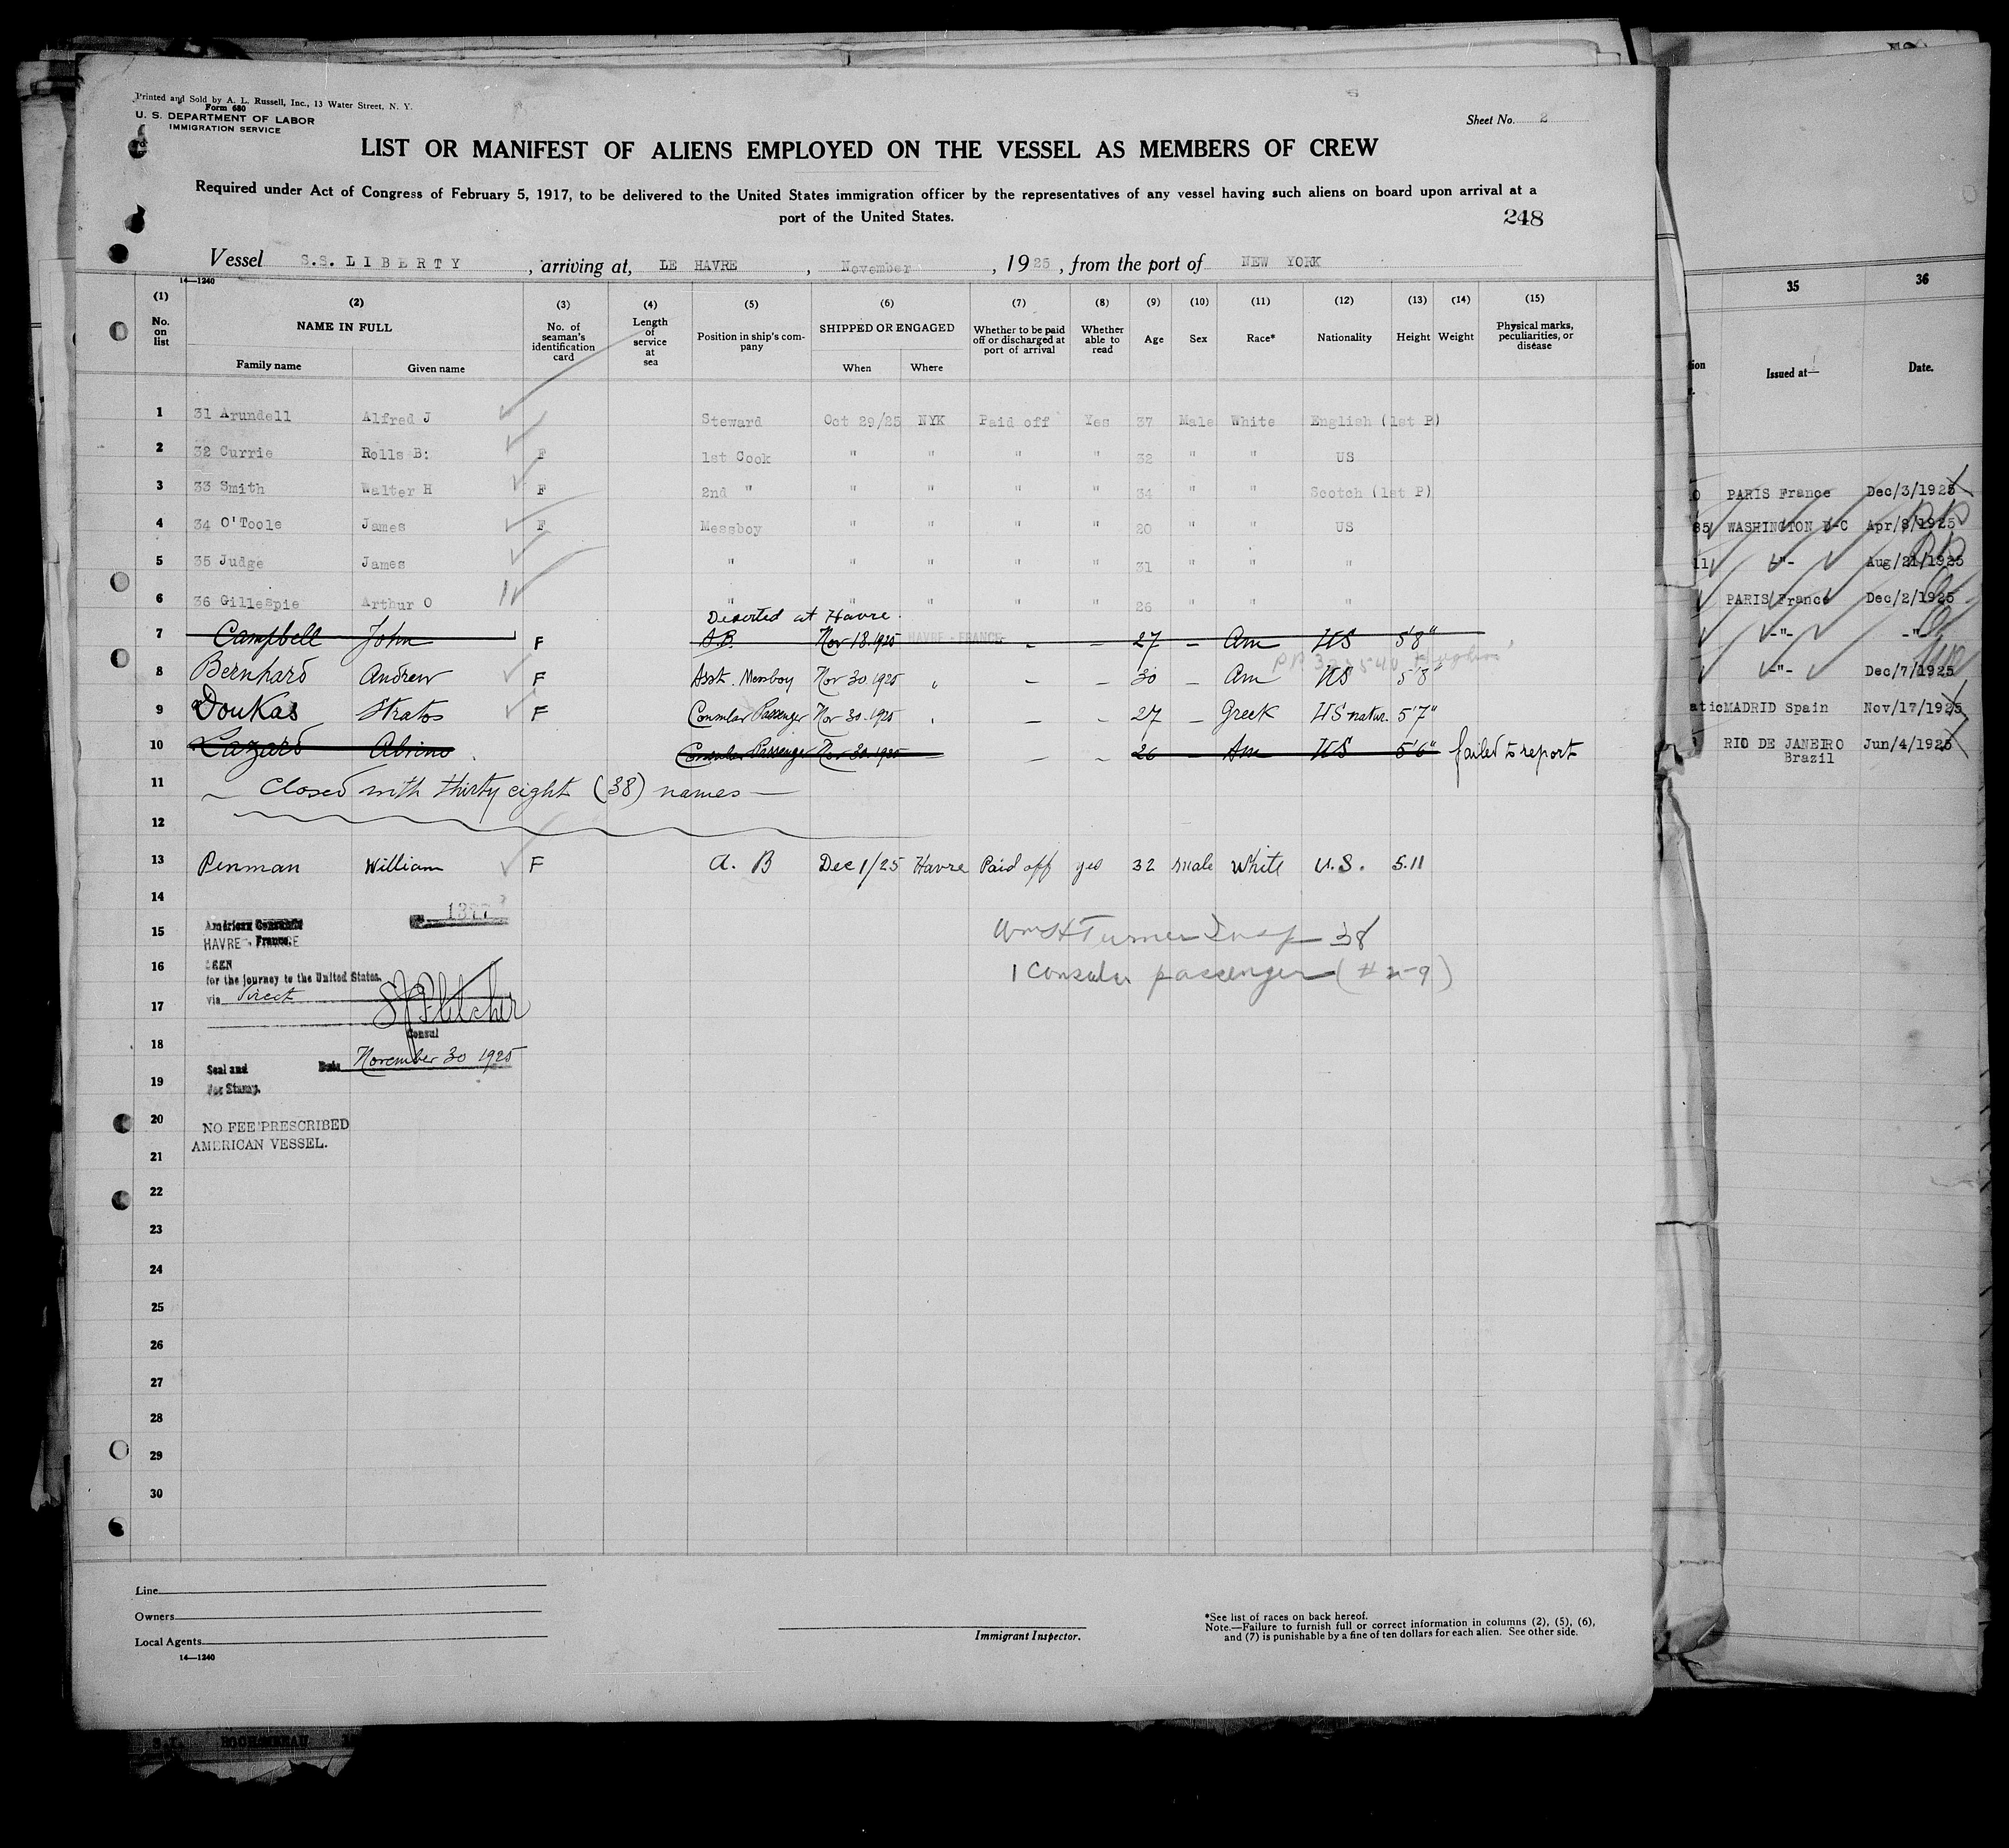 Printed and Sold by A. L. Russell, Inc., 13 Water Street, N. Y.
Form 680
U. S. DEPARTMENT OF LABOR
IMMIGRATION SERVICE
Sheet No. 2
LIST OR MANIFEST OF ALIENS EMPLOYED ON THE VESSEL AS MEMBERS OF CREW
Required under Act of Congress of February 5, 1917, to be delivered to the United States immigration officer by the representatives of any vessel having such aliens on board upon arrival at a
port of the United States.
248
Vessel S.S. LIBERTY, arriving at, LE HAVRE, November, 1925, from the port of NEW YORK
14—1240
(1) (2) (3) (4) (5) (6) (7) (8) (9) (10) (11) (12) (13) (14) (15)
No. on list NAME IN FULL No. of seaman's identification card Length of service at sea Position in ship's company SHIPPED OR ENGAGED Whether to be paid off or discharged at port of arrival Whether able to read Age Sex Race* Nationality Height Weight Physical marks, peculiarities, or disease
Family name Given name When Where
1 31 Arundell Alfred J Steward Oct 29/25 NYK Paid off Yes 37 Male White English (1st P)
2 32 Currie Rolls B: F 1st Cook " " " " 32 " " US
3 33 Smith Walter H F 2nd " " " " " 34 " " Scotch (1st P)
4 34 O'Toole James F Messboy " " " " 20 " " US
5 35 Judge James " " " " " 31 " " "
6 36 Gillespie Arthur O " " " " " 26 " " "
Deserted at Havre.
7 Campbell John F A.B. Nov 18.1925 HAVRE - FRANCE - - 27 - Am US 5'8"
8 Bernhard Andrew F Asst. Messboy Nov 30.1925 " - - 30 - Am US 5'8"
9 Doukas Stratos F Consular Passenger Nov 30.1925 " - - 27 - Greek US natur. 5'7"
10 Lazard Consular Passenger Nov 30.1925 - - 26 - Am US 5'6" failed to report
11 Closed with thirty eight (38) names
12
13 Penman William F A. B Dec 1/25 Havre Paid off yes 32 male White U.S. 5.11
14
15 American Consulate
HAVRE - France
Wm H Turner Insp 38
16 SEEN
for the journey to the United States.
1 Consular passenger (# 2-9)
17 via Direct
S Fletcher
Consul
18
Date November 30 1925
19 Seal and
Fee Stamp.
20 NO FEE PRESCRIBED
AMERICAN VESSEL.
21
22
23
24
25
26
27
28
29
30
Line
Owners
Local Agents
14—1240
Immigrant Inspector.
*See list of races on back hereof.
Note.—Failure to furnish full or correct information in columns (2), (5), (6),
and (7) is punishable by a fine of ten dollars for each alien. See other side.
35 36
Issued at— Date.
PARIS France Dec/3/1925
WASHINGTON D-C Apr/8/1925
-"- Aug/21/1925
PARIS France Dec/2/1925
-"- -"-
-"- Dec/7/1925
MADRID Spain Nov/17/1925
RIO DE JANEIRO Jun/4/1925
Brazil